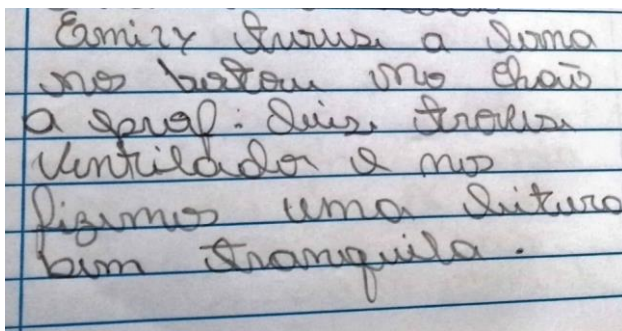 Emily trouse a lona
nos botou uno chão
a prof: Luis. trouse
ventilador e nos
fizemos uma leitura
bem tranquila.